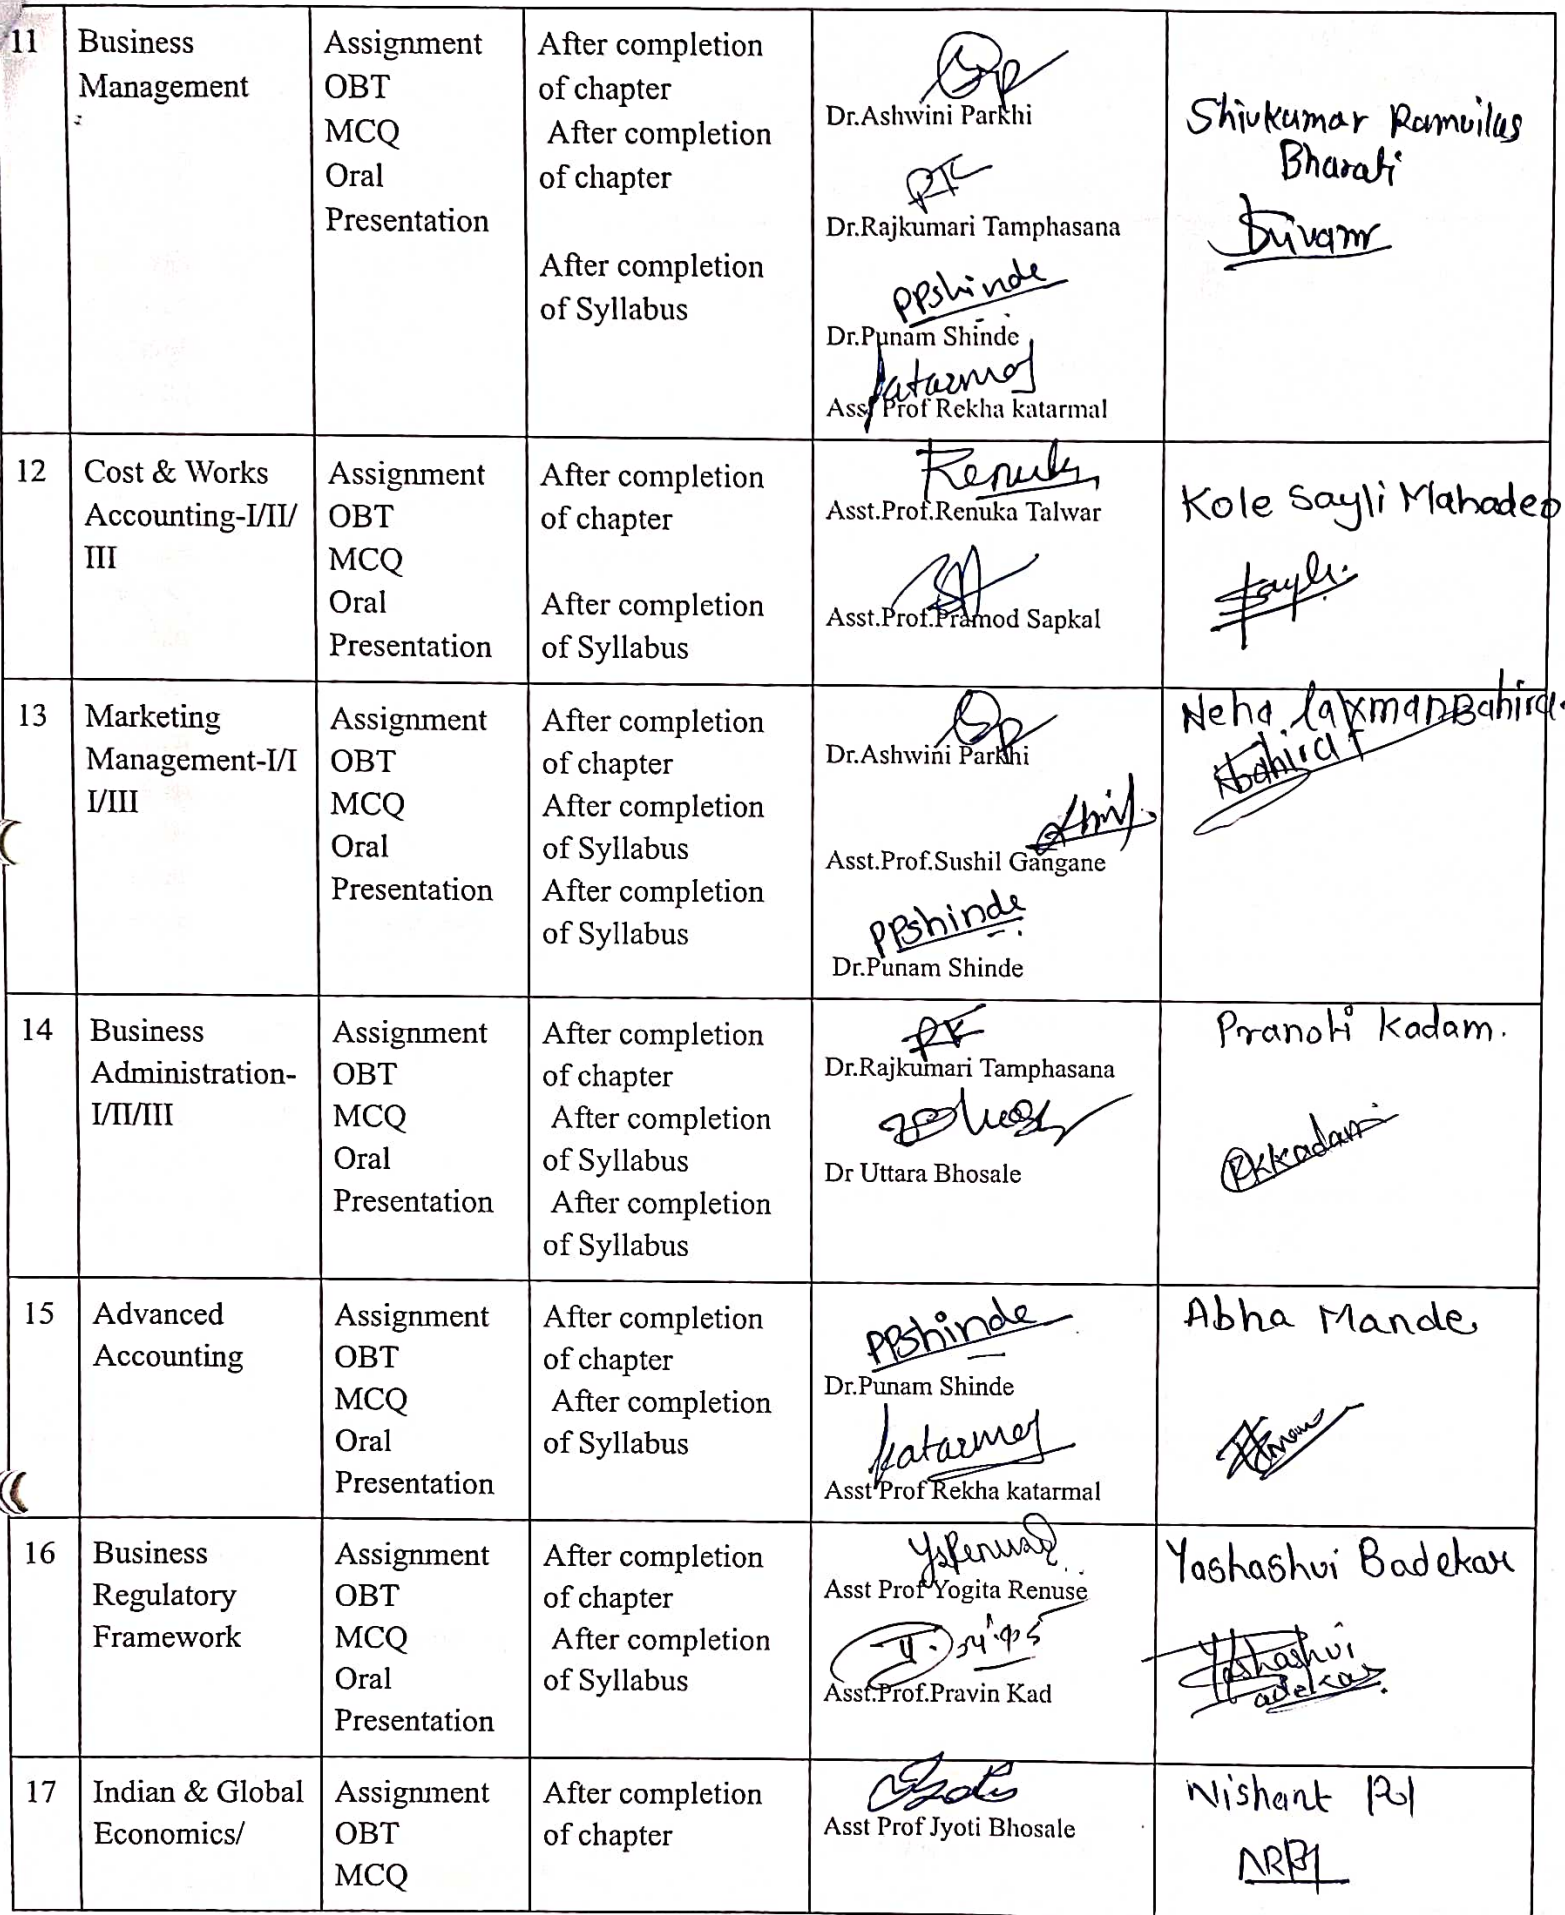 11
Business
Management
Assignment
OBT
MCQ
Oral
Presentation
After completion
of chapter
After completion
of chapter
After completion
of Syllabus
Dr.Ashwini Parkhi
Dr.Rajkumari Tamphasana
PPshinde
Dr.Punam Shinde
Katarmal
Asst Prof Rekha katarmal
Shivkumar Ramvilas
Bharati
12
Cost & Works
Accounting-I/II/
III
Assignment
OBT
MCQ
Oral
Presentation
After completion
of chapter
After completion
of Syllabus
Renuka
Asst.Prof.Renuka Talwar
Asst.Prof.Pramod Sapkal
Kole Sayli Mahadeo
Sayli
13
Marketing
Management-I/I
I/III
Assignment
OBT
MCQ
Oral
Presentation
After completion
of chapter
After completion
of Syllabus
After completion
of Syllabus
Dr.Ashwini Parkhi
Asst.Prof.Sushil Gangane
PPShinde
Dr.Punam Shinde
Neha Laxman Bahirat
NBahirat
14
Business
Administration-
I/II/III
Assignment
OBT
MCQ
Oral
Presentation
After completion
of chapter
After completion
of Syllabus
After completion
of Syllabus
Dr.Rajkumari Tamphasana
Dr Uttara Bhosale
Pranoti Kadam.
PKKadam
15
Advanced
Accounting
Assignment
OBT
MCQ
Oral
Presentation
After completion
of chapter
After completion
of Syllabus
PPShinde
Dr.Punam Shinde
Katarmal
Asst Prof Rekha katarmal
Abha Mande
16
Business
Regulatory
Framework
Assignment
OBT
MCQ
Oral
Presentation
After completion
of chapter
After completion
of Syllabus
YSRenuse
Asst Prof Yogita Renuse
Asst.Prof.Pravin Kad
Yashashvi Badekar
Yashashvi
Badekar
17
Indian & Global
Economics/
Assignment
OBT
MCQ
After completion
of chapter
Asst Prof Jyoti Bhosale
Nishant